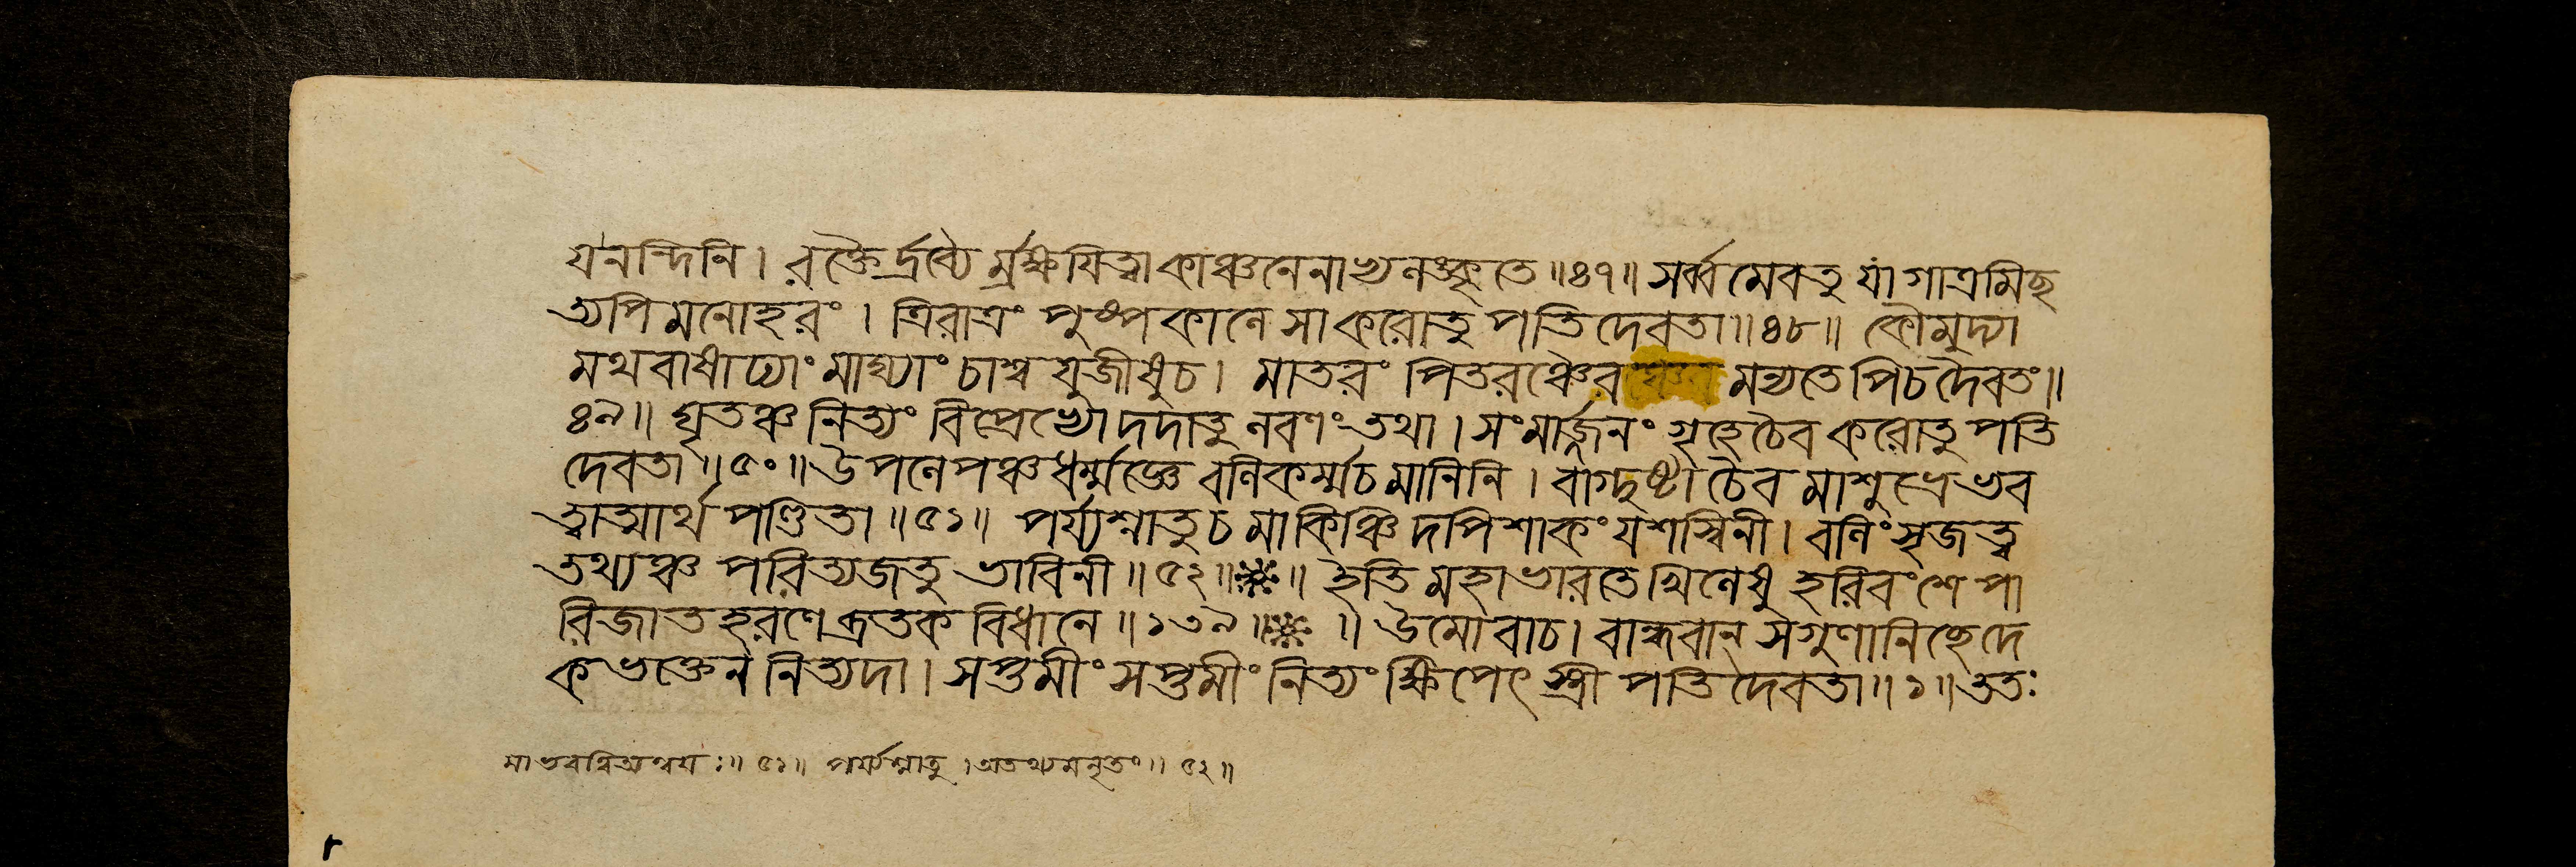 যনন্দিনি। রক্তৈর্দ্রব্যৈ র্ম্রক্ষয়িত্বা কাঞ্চনেনাথ্যনঙ্কৃতে॥৪৭॥ সর্ব্বমেবতু যা গাত্রমিছ
ত্যপি মনোহরং। ত্রিরাত্রং পুষ্পকানে সা করোতু পতিদেবতা॥৪৮॥ কৌমুদ্যা
মথবাষাঢ্যাং মাঘ্যাং চাশ্বযুজীষুচ। মাতরং পিতরঞ্চৈব মন্যতে পিচদৈবতং॥
৪৯॥ ঘৃতঞ্চ নিত্যং বিপ্রেভ্যো দদাতু নবণং তথা। সংমার্জ্জনং গৃহেচৈব করোতু পতি
দেবতা॥৫০॥ উপনেপঞ্চ ধর্ম্মজ্ঞে বনিকর্ম্মচ মানিনি। বাগ্দুষ্টা চৈব মাশুভ্রে ভব
ত্বাত্মার্থ পণ্ডিতা॥৫১॥ পর্য্যশ্নাতু চ মা কিঞ্চি দপি শাকং যশস্বিনী। বনিং সৃজত্ব
তথ্যঞ্চ পরিত্যজতু ভাবিনী॥৫২॥❊॥ ইতি মহাভারতে খিনেষু হরিবংশে পা
রিজাতহরণে ব্রতক বিধানে॥১৩৯॥❊॥ উমোবাচ। বান্ধবান্ সগুণানিহেদে
কভক্তেন নিত্যদা। সপ্তমীং সপ্তমীং নিত্যং ক্ষিপেৎ স্ত্রী পতিদেবতা॥১॥ ততঃ
মা ভবত্বিত্যন্বয়ঃ॥৫১॥ পর্য্যশ্নাতু। অতথ্যমনৃতং॥৫২॥